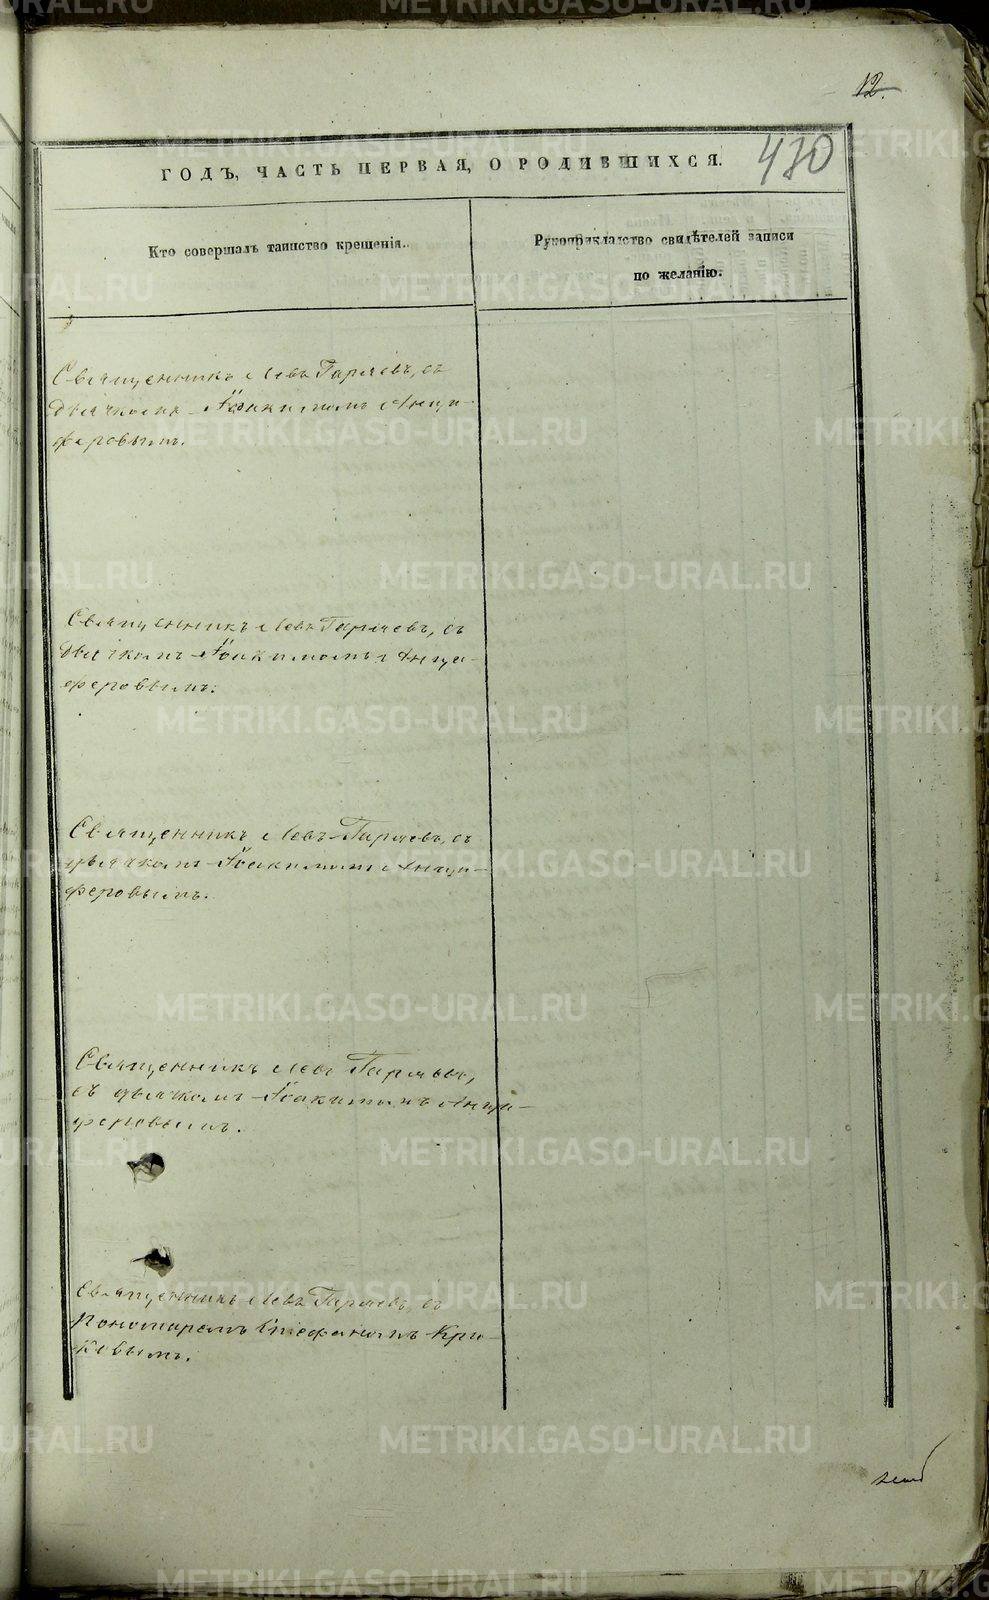 12.
470
ГОДЪ, ЧАСТЬ ПЕРВАЯ, О РОДИВШИХСЯ.
Кто совершалъ таинство крещенія.
Рукоприкладство свидѣтелей записи
по желанію.
Священникъ Левъ Гаряевъ, съ
дьячкомъ Іоакимомъ Анци-
феровымъ.
Священникъ Левъ Гаряевъ, съ
дьячкомъ Іоакимомъ Анци-
феровымъ.
Священникъ Левъ Гаряевъ, съ
дьячкомъ Іоакимомъ Анци-
феровымъ.
Священникъ Левъ Гаряевъ,
съ дьячкомъ Іоакимомъ Анци-
феровымъ.
Священникъ Левъ Гаряевъ, съ
Пономаремъ Стефаномъ Кри-
ковымъ.
METRIKI.GASO-URAL.RU